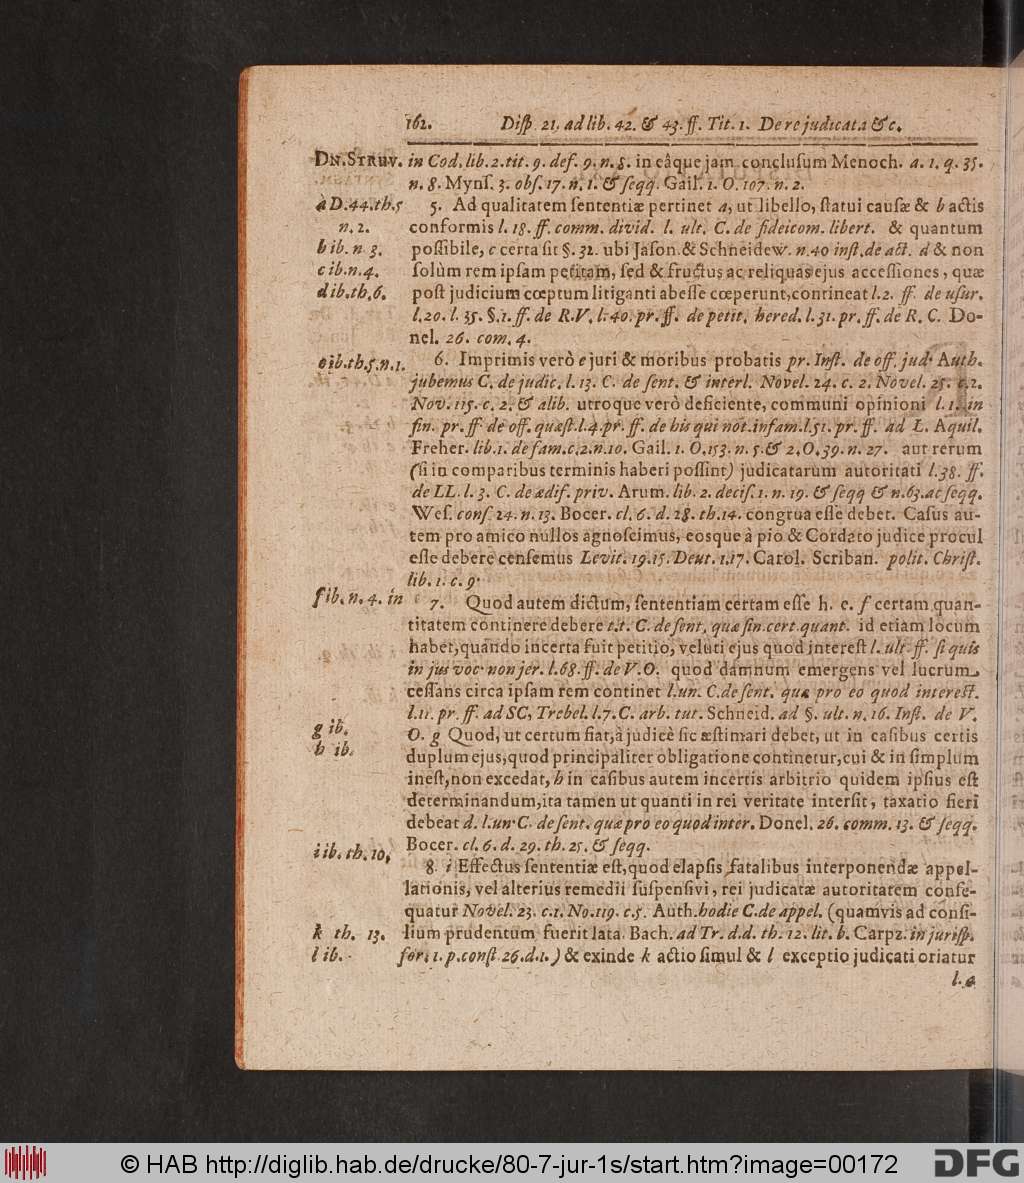 162. Diſp. 21. ad lib. 42. & 43. ff. Tit. 1. De re judicata &c.
DN. STRUV. in Cod. lib. 2. tit. 9. def. 9. n. 5. in eâque jam concluſum Menoch. a. 1. q. 35.
n. 8. Mynſ. 3. obſ. 17. n. 1. & ſeqq. Gail. 1. O. 107. n. 2.
a D. 44. th. 5 5. Ad qualitatem ſententiæ pertinet a, ut libello, ſtatui cauſæ & b actis
n. 2. conformis l. 18. ff. comm. divid. l. ult. C. de fideicom. libert. & quantum
b ib. n 3. poſſibile, c certa ſit §. 32. ubi Jaſon. & Schneidew. n. 40 inſt. de act. d & non
c ib. n. 4. ſolùm rem ipſam petitam, ſed & fructus ac reliquas ejus acceſſiones, quæ
d ib. th. 6. poſt judicium cœptum litiganti abeſſe cœperunt, contineat l. 2. ff. de uſur.
l. 20. l. 35. §. 1. ff. de R. V. l. 40. pr. ff. de petit. hered. l. 31. pr. ff. de R. C. Do-
nel. 26. com. 4.
e ib. th. 5. n. 1. 6. Imprimis verò e juri & moribus probatis pr. Inſt. de off. jud. Auth.
jubemus C. de judic. l. 13. C. de ſent. & interl. Novel. 24. c. 2. Novel. 25. c. 2.
Nov. 115. c. 2. & alib. utroque verò deficiente, communi opinioni l. 1. in
fin. pr. ff de off. quæſt. l. 4. pr. ff. de his qui not. infam. l. 51. pr. ff. ad L. Aquil.
Freher. lib. 1. de fam. c. 2. n. 10. Gail. 1. O. 153. n. 5. & 2. O. 39. n. 27. aut rerum
(ſi in comparibus terminis haberi poſſint) judicatarum autoritati l. 38. ff.
de LL. l. 3. C. de ædif. priv. Arum. lib. 2. deciſ. 1. n. 19. & ſeqq & n. 63. ac ſeqq.
Weſ. conſ. 24. n. 13. Bocer. cl. 6. d. 28. th. 14. congrua eſſe debet. Caſus au-
tem pro amico nullos agnoſcimus, eosque à pio & Cordato judice procul
eſſe debere cenſemus Levit. 19. 15. Deut. 1. 17. Carol. Scriban. polit. Chriſt.
lib. 1. c. 9.
f ib. n. 4. in 7. Quod autem dictum, ſententiam certam eſſe h. e. f certam quan-
titatem continere debere t. t. C. de ſent. quæ ſin. cert. quant. id etiam locum
habet, quando incerta fuit petitio, veluti ejus quod intereſt l. ult. ff. ſi quis
in jus voc. non jer. l. 68. ff. de V. O. quod damnum emergens vel lucrum
ceſſans circa ipſam rem continet l. un. C. de ſent. quæ pro eo quod intereſt.
l. 11. pr. ff. ad SC, Trebel. l. 7. C. arb. tut. Schneid. ad §. ult. n. 16. Inſt. de V.
g ib. O. g Quod, ut certum fiat, à judice ſic æſtimari debet, ut in caſibus certis
h ib. duplum ejus, quod principaliter obligatione continetur, cui & in ſimplum
ineſt, non excedat, h in caſibus autem incertis arbitrio quidem ipſius eſt
determinandum, ita tamen ut quanti in rei veritate interſit, taxatio fieri
debeat d. l. un. C. de ſent. quæ pro eo quod inter. Donel. 26. comm. 13. & ſeqq.
i ib. th. 10, Bocer. cl. 6. d. 29. th. 25. & ſeqq.
8. i Effectus ſententiæ eſt, quod elapſis fatalibus interponendæ appel-
lationis, vel alterius remedii ſuſpenſivi, rei judicatæ autoritatem conſe-
quatur Novel. 23. c. 1. No. 119. c. 5. Auth. hodie C. de appel. (quamvis ad conſi-
k th. 13. lium prudentum fuerit lata. Bach. ad Tr. d. d. th. 12. lit. b. Carpz. in juriſp.
l ib. for. 1. p. conſt. 26. d. 1.) & exinde k actio ſimul & l exceptio judicati oriatur
l. a
© HAB http://diglib.hab.de/drucke/80-7-jur-1s/start.htm?image=00172 DFG